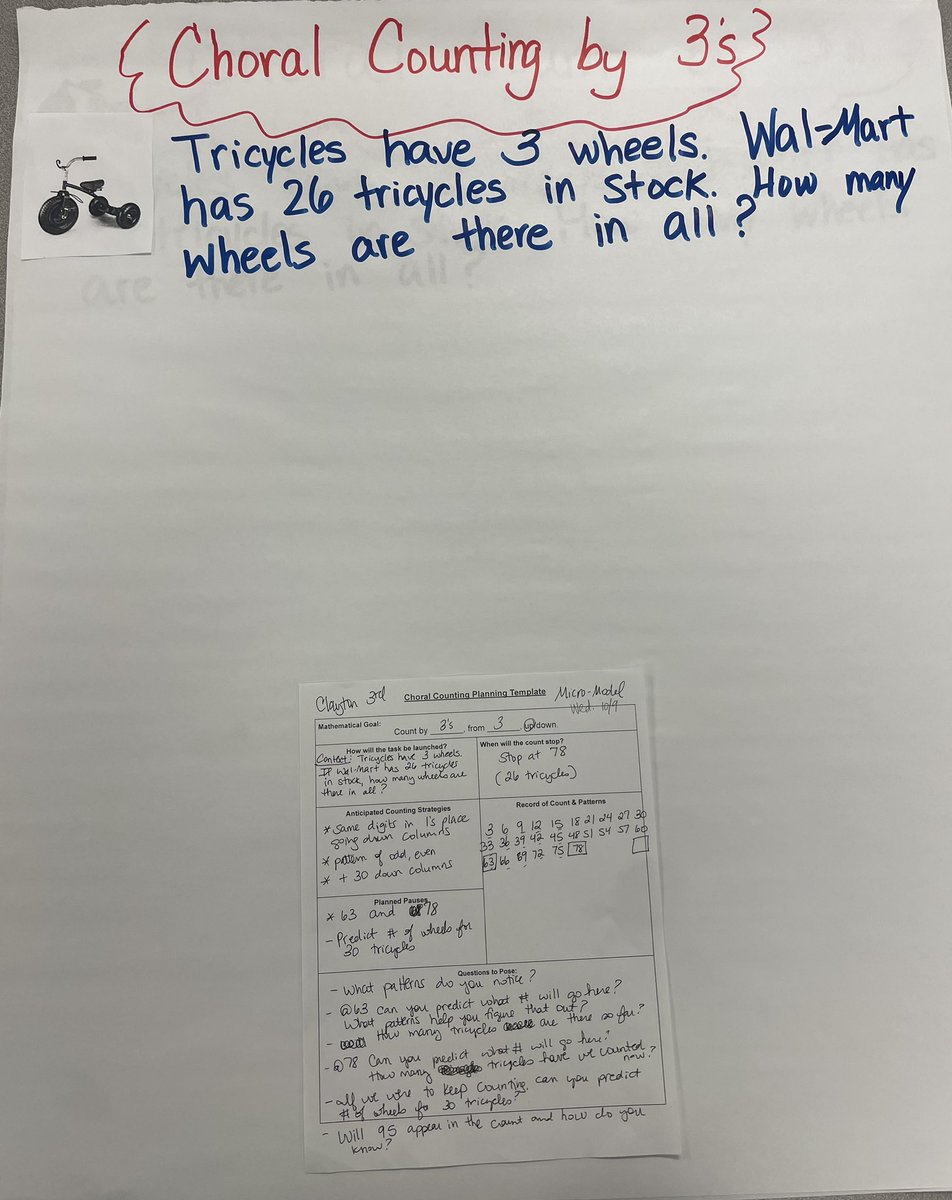 Choral Counting by 3's
Tricycles have 3 wheels. Wal-Mart
has 26 tricycles in stock. How many
wheels are there in all?
Clayton 3rd
Choral Counting Planning Template
Micro-Model
Wed. 10/9
Mathematical Goal:
Count by 3's, from 3, up/down.
How will the task be launched?
Context: Tricycles have 3 wheels.
If Wal-Mart has 26 tricycles
in stock, how many wheels are
there in all?
When will the count stop?
Stop at 78
(26 tricycles)
Anticipated Counting Strategies
* Same digits in 1's place
going down columns
* pattern of odd, even
* + 30 down columns
Record of Count & Patterns
3 6 9 12 15 18 21 24 27 30
33 36 39 42 45 48 51 54 57 60
63 66 69 72 75 78
Planned Pauses
* 63 and 78
- Predict # of wheels for
30 tricycles
Questions to Pose:
- What patterns do you notice?
- @63 Can you predict what # will go here?
What patterns help you figure that out?
- How many tricycles are there so far?
- @78 Can you predict what # will go here?
How many tricycles have we counted
now?
- If we were to keep counting, can you predict
# of wheels for 30 tricycles?
- Will 95 appear in the count and how do you
know?